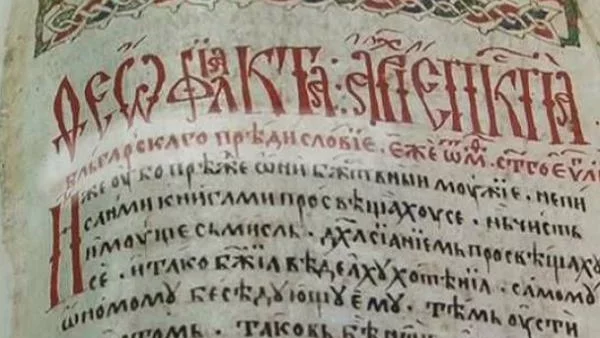 Ѳеѡфілакта: архіепкпа
бльгарскаго прѣдисловіе · еже ѿ мѳ · стго еѵлі
Иже оубо прѣжѣ ѡни бжтвнии моужіе · непи
саними книгами просвѣщахоусе · нь чистъ
имоуще сьмисль · дхл сіаніемь просвѣщаху
се · итако бжіа вѣделху хотѣніа · самому
ѡномому бесѣдующуему · тѣмь оусти
таковь бѣ